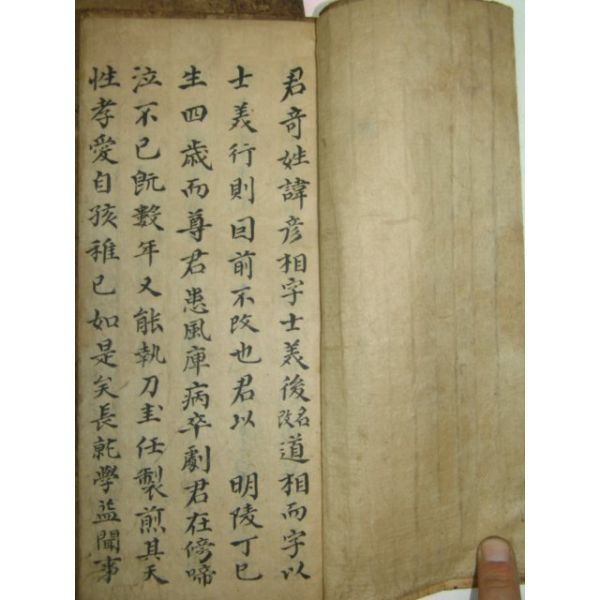 君奇姓諱彦相字士義後改名道相而字以
士義行則回前不改也君以 明陵丁巳
生四歳而尊君患風庫病卒劇君在傍啼
泣不已旣數年又能執刀圭任製煎其天
性孝愛自孩稚已如是矣長就學益聞事